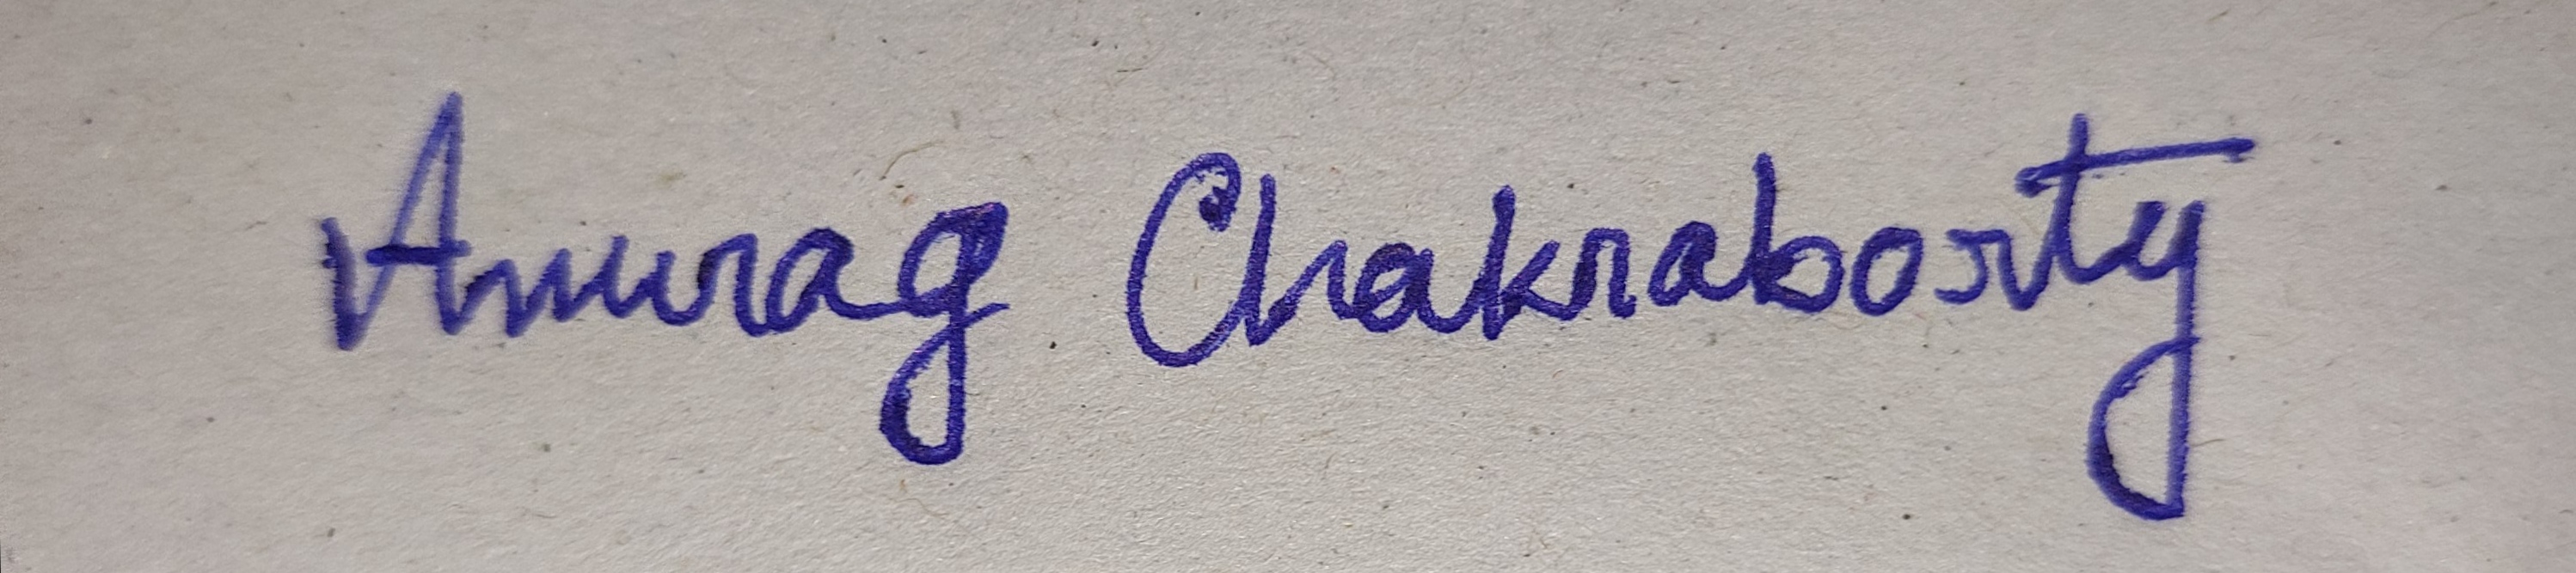 Anurag Chakraborty